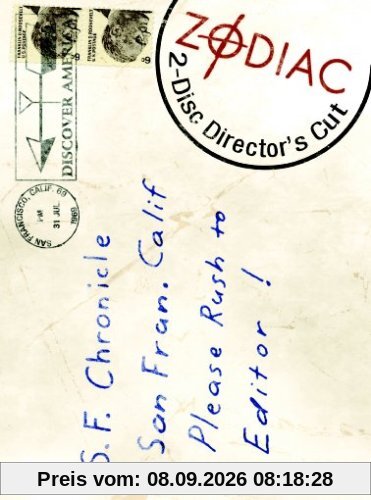 ZODIAC
2-Disc Director's Cut
FRANKLIN D. ROOSEVELT
U.S. POSTAGE
6¢
FRANKLIN D. ROOSEVELT
U.S. POSTAGE
6¢
DISCOVER AMERICA
SAN FRANCISCO, CALIF. 69
PM
31 JUL
1969
S.F. Chronicle
San Fran. Calif
Please Rush to
Editor!
Preis vom: 08.09.2026 08:18:28